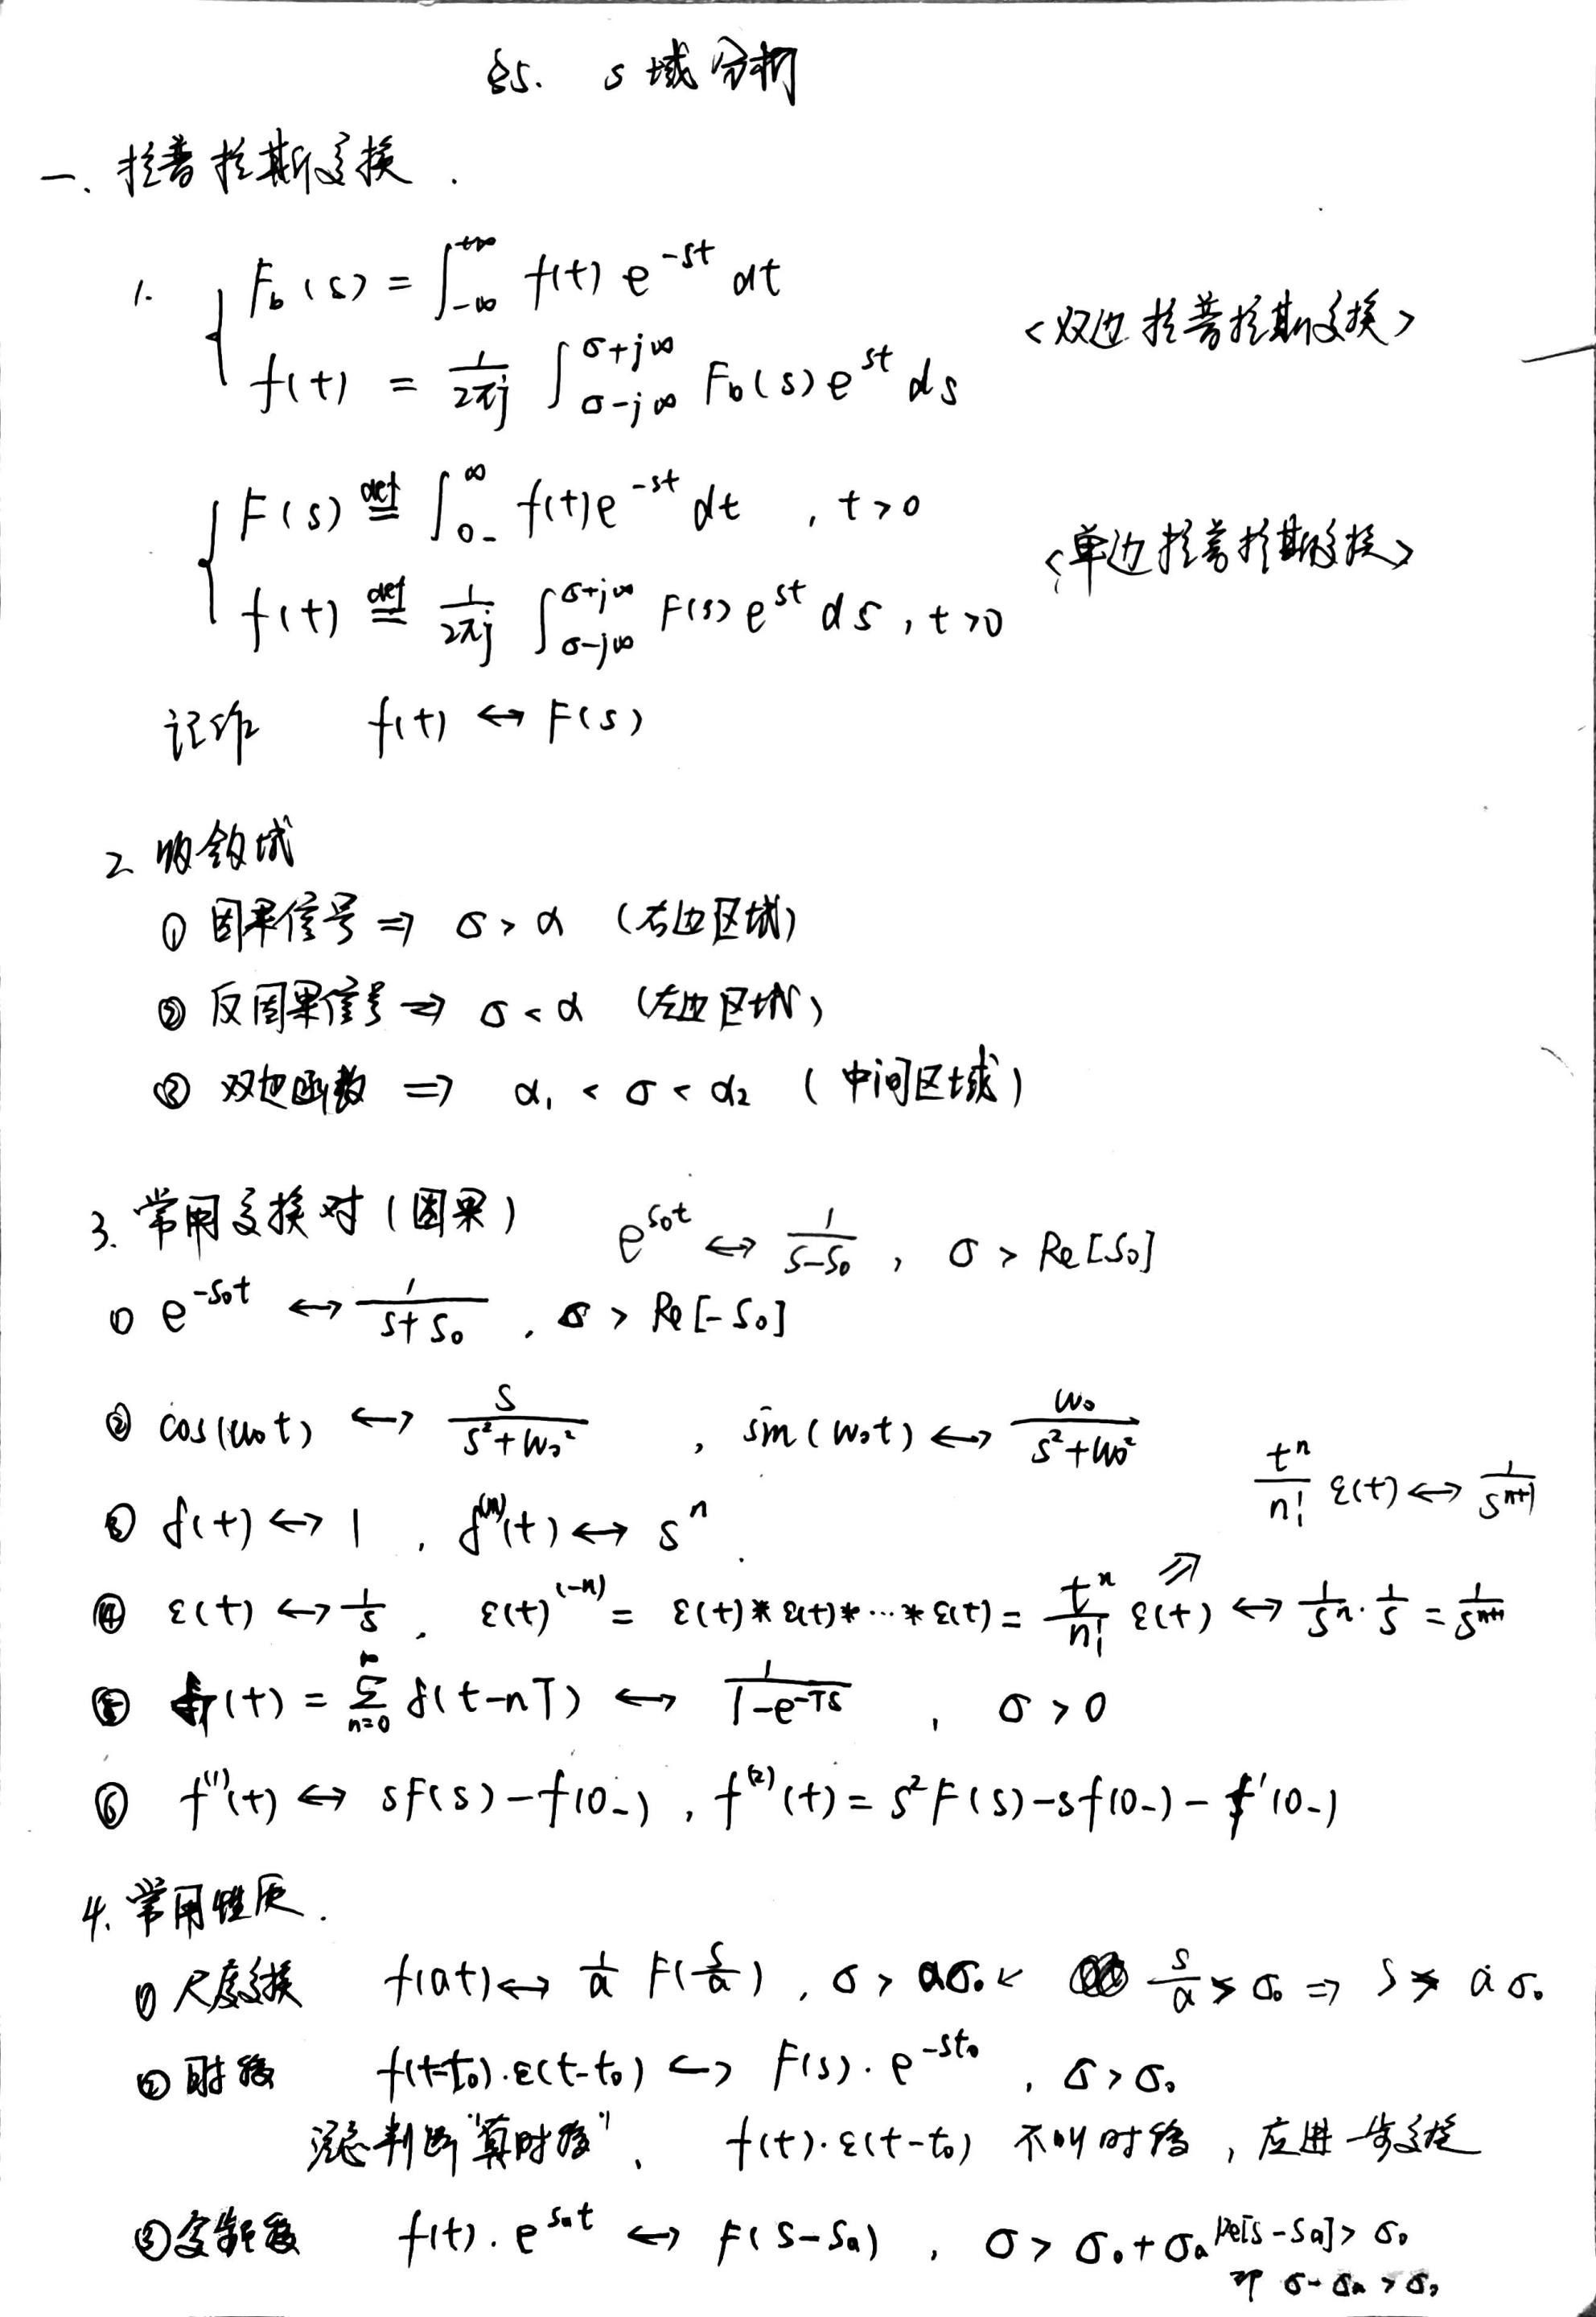 §5. s域分析
一、拉普拉斯变换.
1. F_b(s) = ∫_{-∞}^{+∞} f(t) e^{-st} dt
<双边拉普拉斯变换>
f(t) = \frac{1}{2πj} ∫_{σ-j∞}^{σ+j∞} F_b(s) e^{st} ds
F(s) \overset{def}{=} ∫_{0-}^{∞} f(t) e^{-st} dt , t>0
<单边拉普拉斯变换>
f(t) \overset{def}{=} \frac{1}{2πj} ∫_{σ-j∞}^{σ+j∞} F(s) e^{st} ds , t>0
记作 f(t) ↔ F(s)
2. 收敛域
① 因果信号 ⇒ σ > α (右边区域)
② 反因果信号 ⇒ σ < α (左边区域)
③ 双边函数 ⇒ α₁ < σ < α₂ (中间区域)
3. 常用变换对 (因果) e^{s₀t} ↔ \frac{1}{s-s₀} , σ > Re[s₀]
① e^{-s₀t} ↔ \frac{1}{s+s₀} , σ > Re[-s₀]
② cos(ω₀t) ↔ \frac{s}{s²+ω₀²} , sin(ω₀t) ↔ \frac{ω₀}{s²+ω₀²}
\frac{t^n}{n!} ε(t) ↔ \frac{1}{s^{n+1}}
③ δ(t) ↔ 1 , δ^{(n)}(t) ↔ s^n
④ ε(t) ↔ \frac{1}{s} , ε(t)^{(-n)} = ε(t)*ε(t)*…*ε(t) = \frac{t^n}{n!} ε(t) ↔ \frac{1}{s^n}·\frac{1}{s} = \frac{1}{s^{n+1}} ⇗
⑤ (t) = ∑_{n=0}^{∞} δ(t-nT) ↔ \frac{1}{1-e^{-Ts}} , σ > 0
⑥ f^{(1)}(t) ↔ sF(s) - f(0-) , f^{(2)}(t) = s²F(s) - sf(0-) - f'(0-)
4. 常用性质.
① 尺度变换 f(at) ↔ \frac{1}{a} F(\frac{s}{a}) , σ > aσ₀ ← \frac{s}{a} > σ₀ ⇒ s > aσ₀
② 时移 f(t-t₀)·ε(t-t₀) ↔ F(s)·e^{-st₀} , σ > σ₀
注意判断"真时移"、 f(t)·ε(t-t₀) 不叫时移 , 应进一步变换
③ 复频移 f(t)·e^{s_a t} ↔ F(s-s_a) , σ > σ₀+σ_a Re[s-s_a] > σ₀
即 σ-σ_a > σ₀